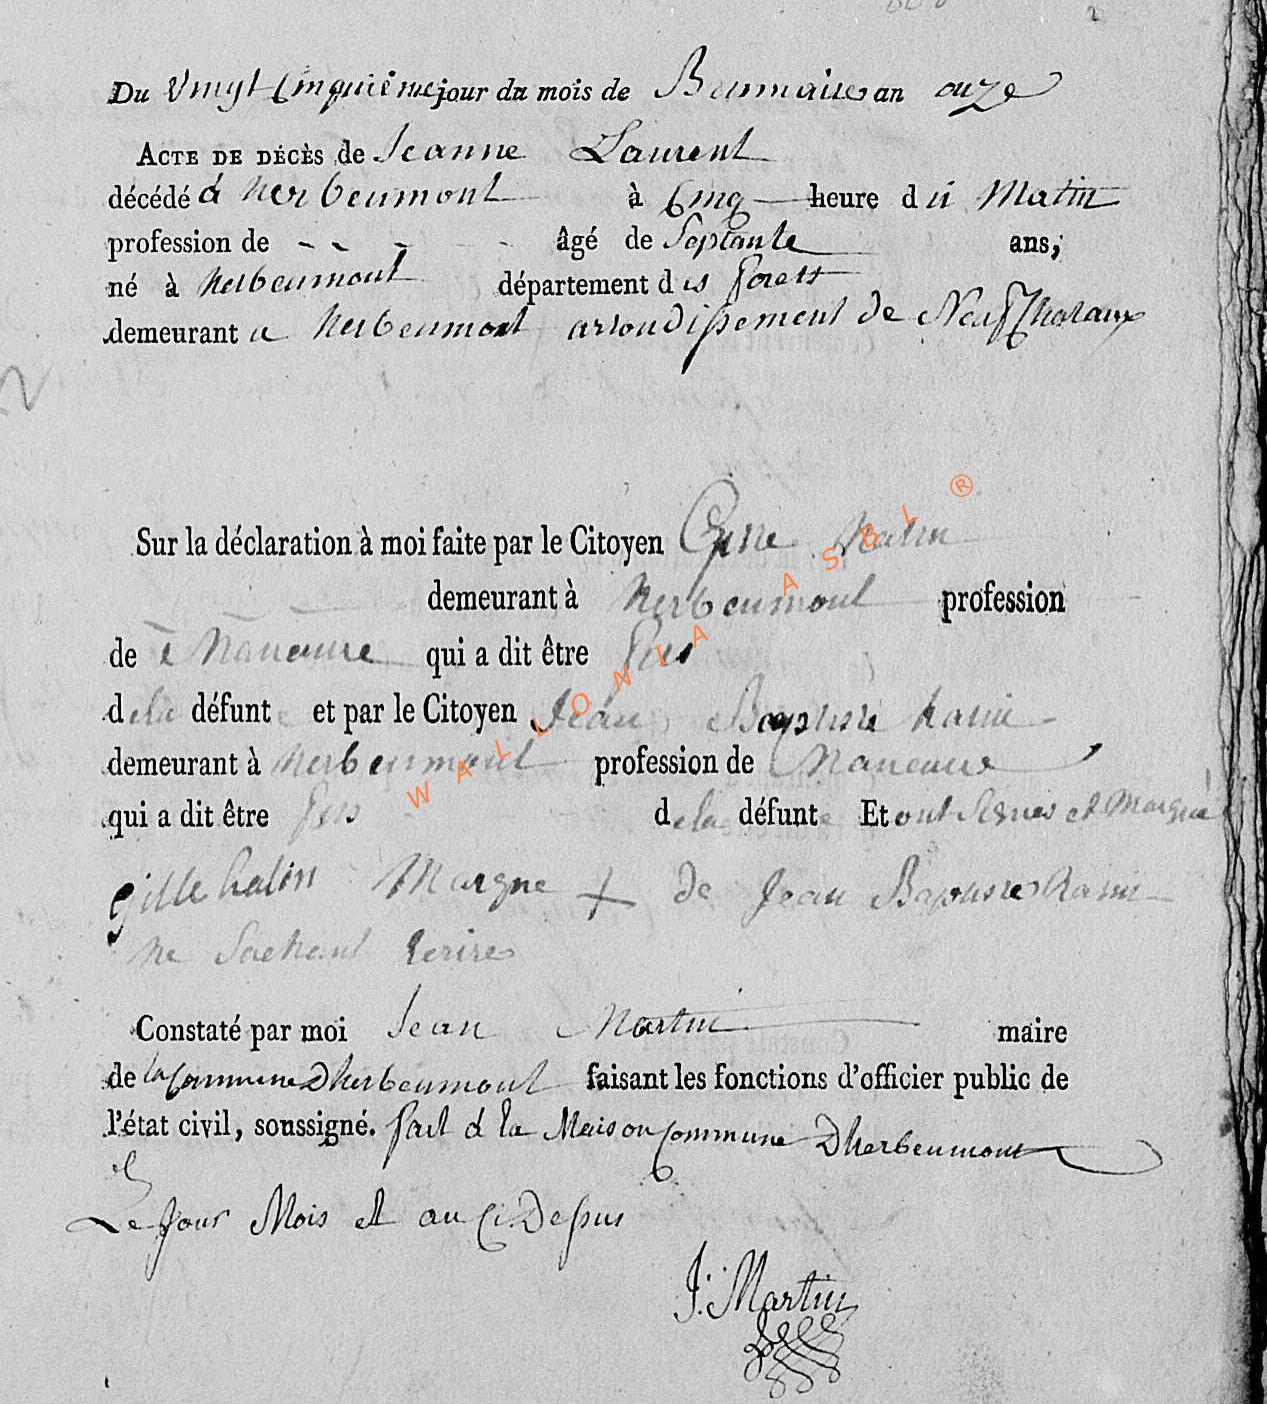 Du Vingt Cinquieme jour du mois de Brumaire an onze
ACTE DE DÉCÈS de Jeanne Laurent
décédé á herbeumont à Cinq heure du Matin
profession de - - - - âgé de Septante ans,
né à herbeumont département des forets
demeurant a herbeumont arrondissement de Neufchataux
Sur la déclaration à moi faite par le Citoyen
demeurant à herbeumont profession
de Maneuvre qui a dit être fils
dela défunte et par le Citoyen Jean Baptiste
demeurant à herbeumont profession de Maneuvre
qui a dit être fils dela défunte Et ont Signes et Marqué
gille halin Marque + de Jean Baptiste
ne Sachant Ecrire
Constaté par moi Jean Martin maire
de la Commune Dherbeumont faisant les fonctions d'officier public de
l'état civil, soussigné. fait á la Maison Commune Dherbeumont
Le Jour Mois et an Ci Dessus
J. Martin
WALLONIA ASBL ®